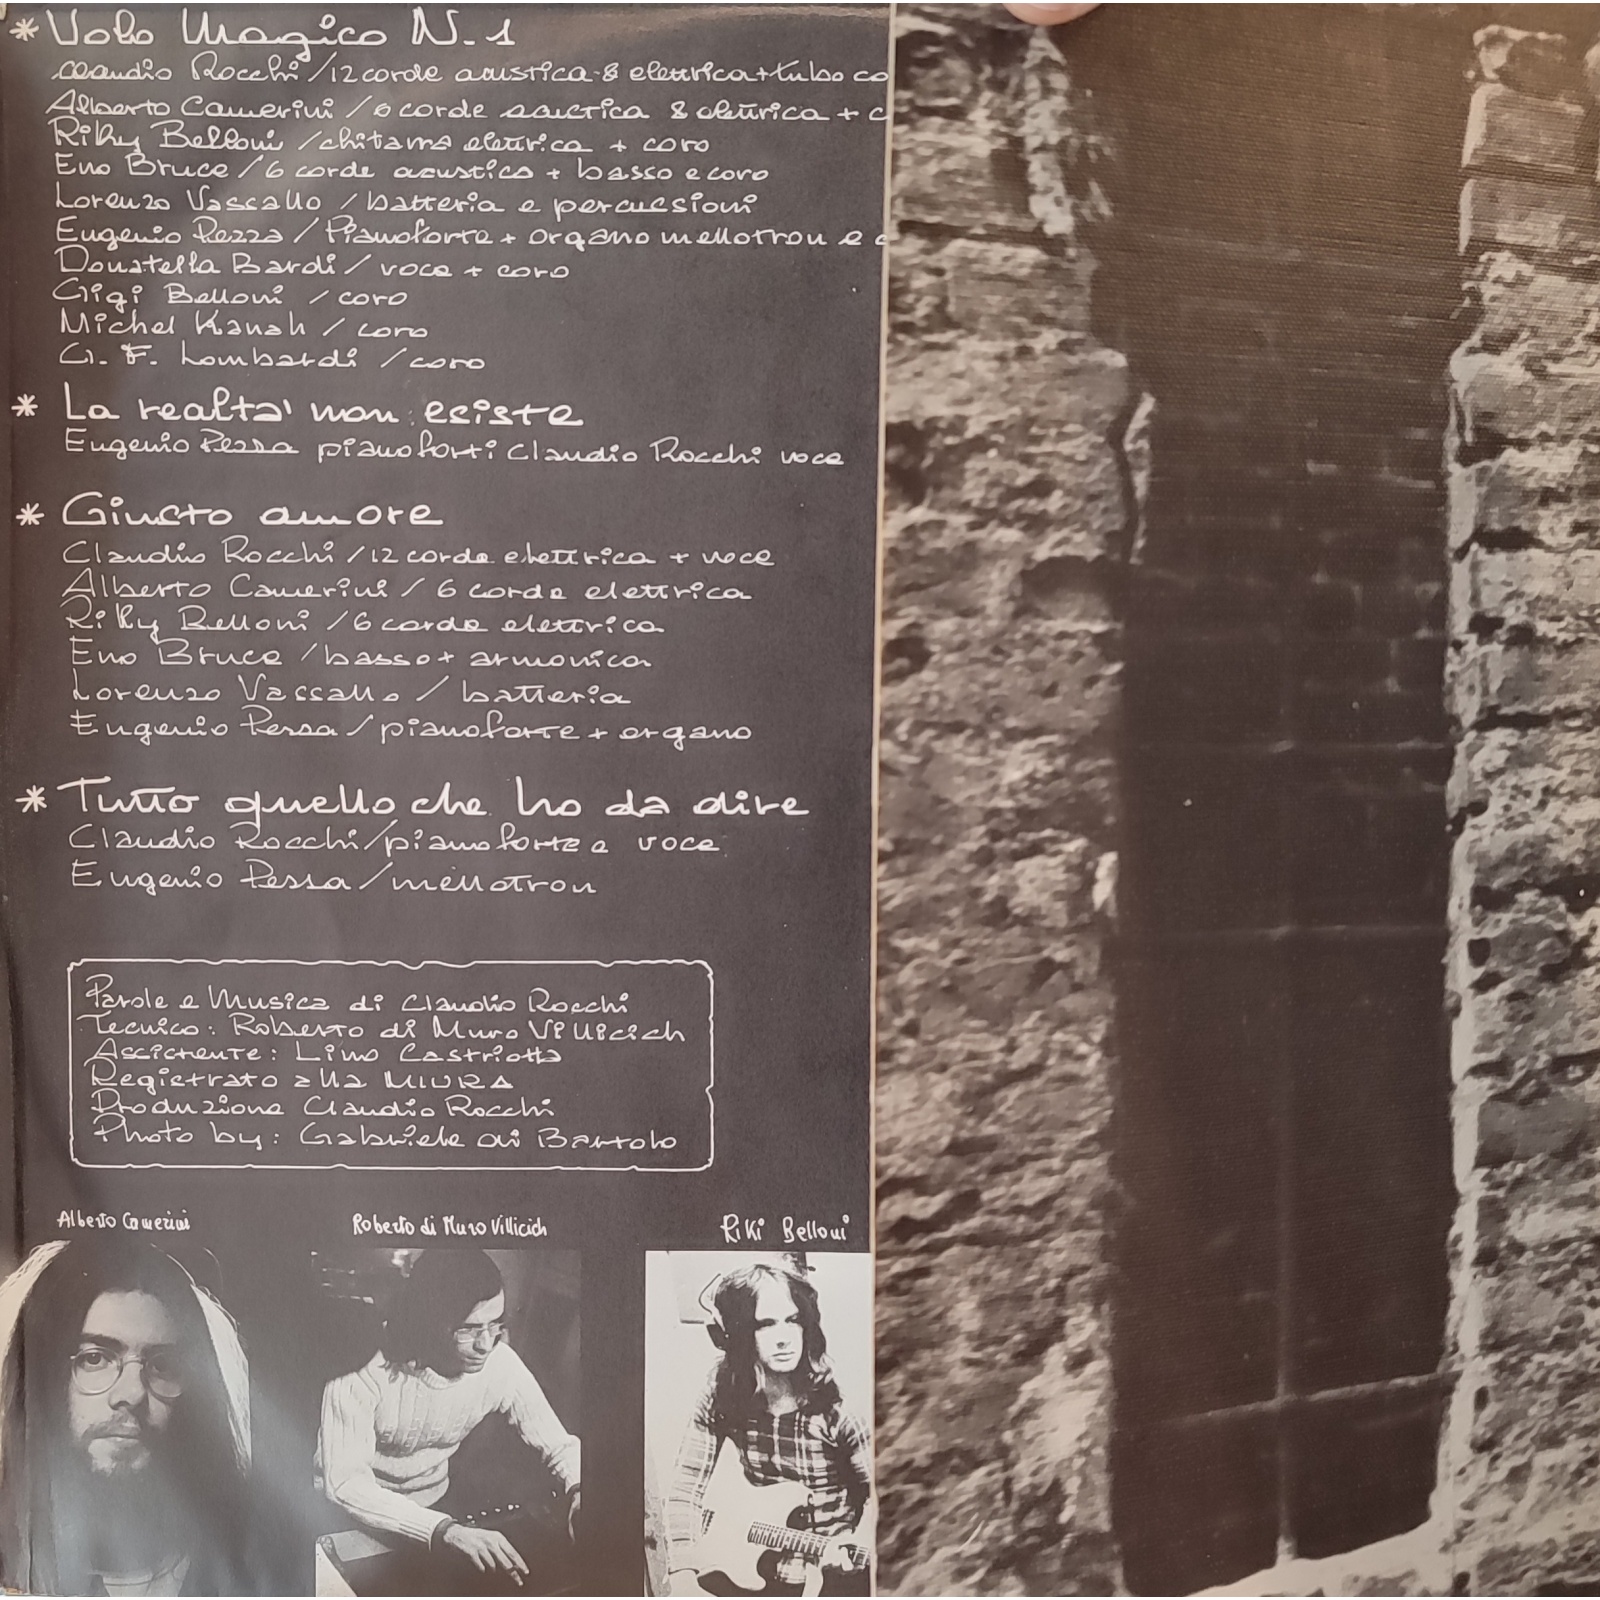 * Volo Magico N. 1
Claudio Rocchi / 12 corde acustica & elettrica + tubo co
Alberto Camerini / 6 corde acustica & elettrica + c
Riky Belloni / chitarra elettrica + coro
Eno Bruce / 6 corde acustica + basso e coro
Lorenzo Vassallo / batteria e percussioni
Eugenio Pezza / Pianoforte + organo mellotron e c
Donatella Bardi / voce + coro
Gigi Belloni / coro
Michel Kanah / coro
G. F. Lombardi / coro
* La realta' non esiste
Eugenio Pezza pianoforti Claudio Rocchi voce
* Giusto amore
Claudio Rocchi / 12 corde elettrica + voce
Alberto Camerini / 6 corde elettrica
Riky Belloni / 6 corde elettrica
Eno Bruce / basso + armonica
Lorenzo Vassallo / batteria
Eugenio Pessa / pianoforte + organo
* Tutto quello che ho da dire
Claudio Rocchi / pianoforte e voce
Eugenio Pessa / mellotron
Parole e Musica di Claudio Rocchi
Tecnico: Roberto di Muro Villicich
Assistente: Lino Castriotta
Registrato alla MIURA
Produzione Claudio Rocchi
Photo by: Gabriele di Bartolo
Alberto Camerini
Roberto di Muro Villicich
Riki Belloni